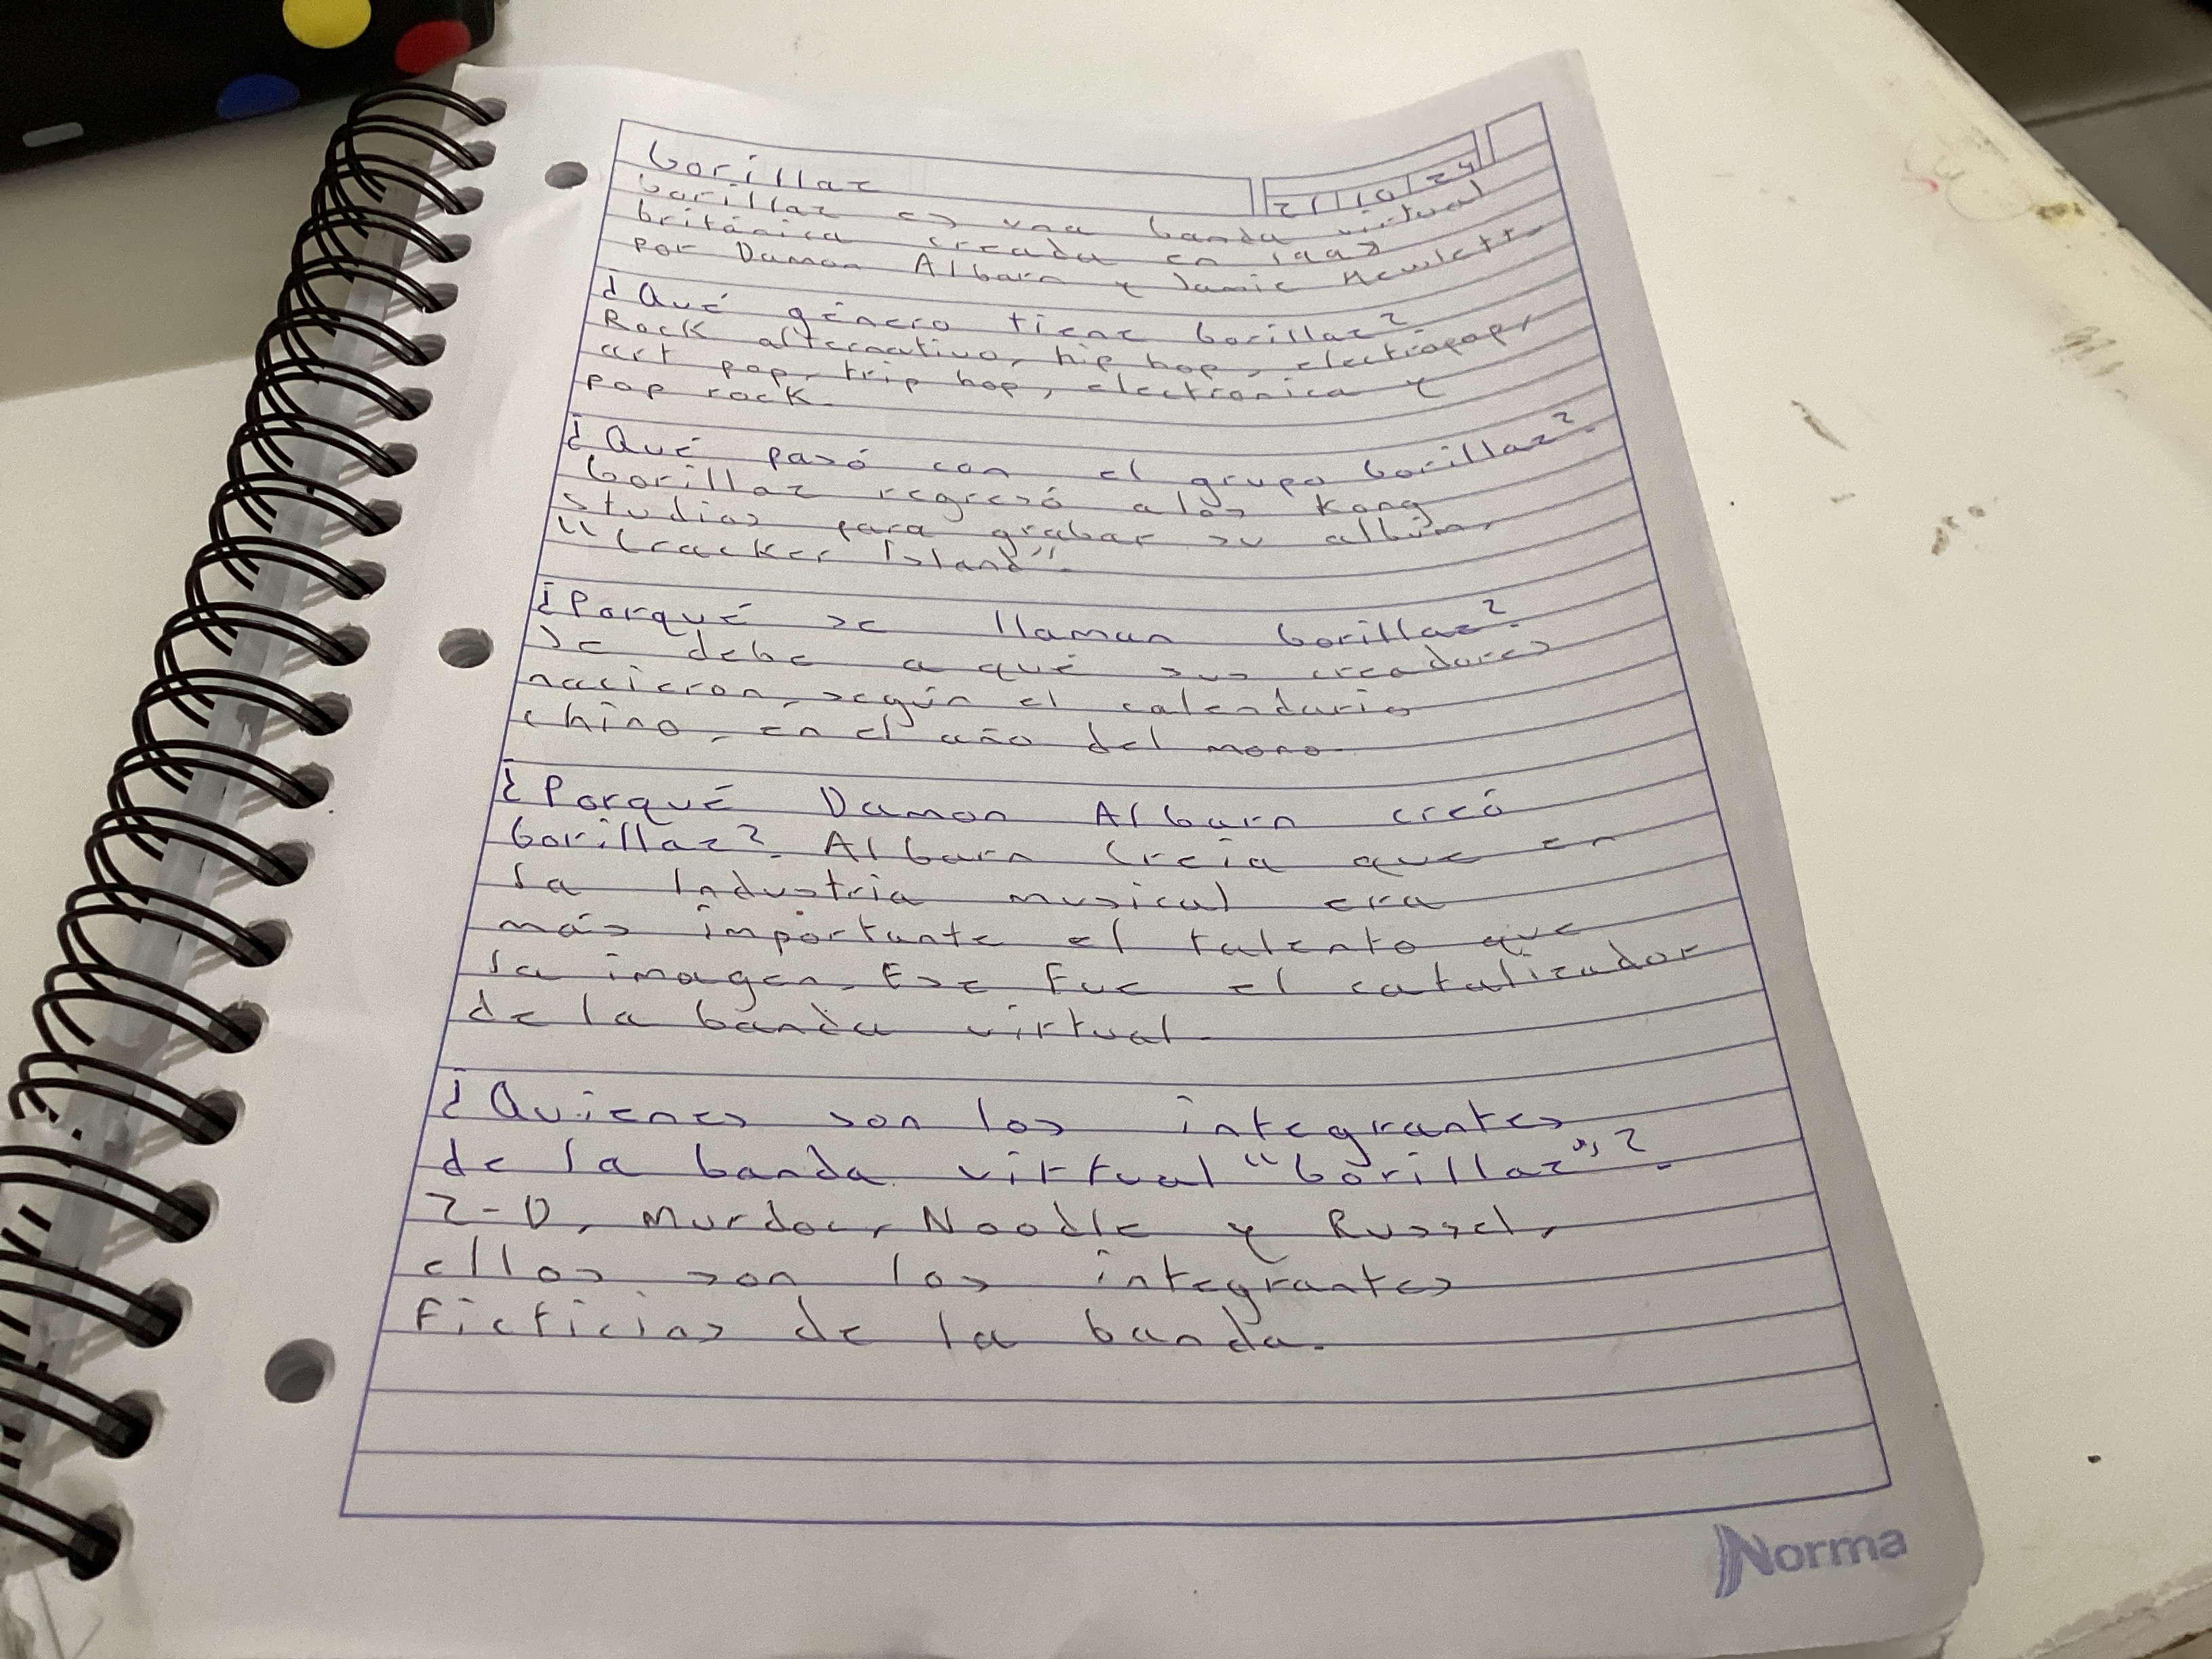 Gorillaz
21/10/24
Gorillaz es una banda virtual
británica creada en 1998
por Damon Albarn y Jamie Hewlett.
¿Qué género tiene Gorillaz?
Rock alternativo, hip hop, electropop,
art pop, trip hop, electronica y
pop rock.
¿Qué pasó con el grupo Gorillaz?
Gorillaz regresó a los Kong
studios para grabar su albúm,
"Cracker Island".
¿Porqué se llaman Gorillaz?
Se debe a qué sus creadores
nacieron, según el calendario
chino, en el año del mono.
¿Porqué Damon Albarn creó
Gorillaz? Albarn Creia que en
la Industria musical era
más importante el talento que
la imagen. Ese fue el catalizador
de la banda virtual.
¿Quienes son los integrantes
de la banda virtual "Gorillaz"?
2-D, Murdoc, Noodle y Russel,
ellos son los integrantes
Ficticios de la banda.
Norma